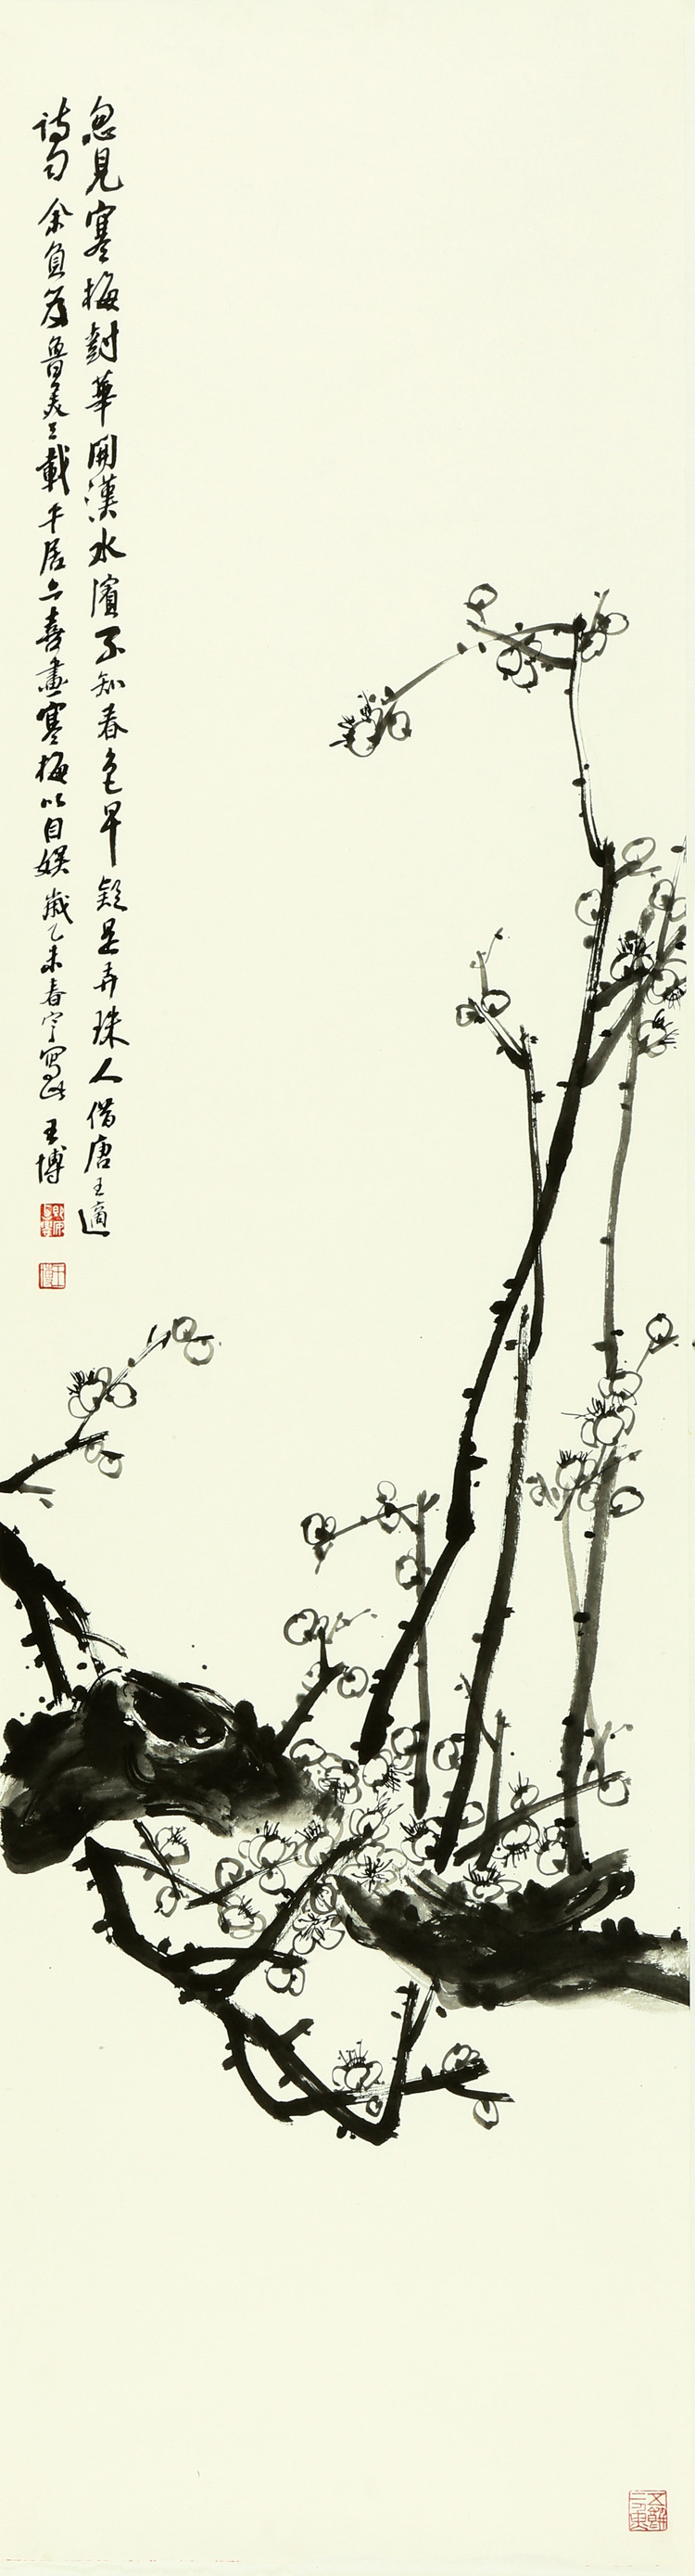 忽見寒梅對華開漢水濱不知春色早疑是弄珠人借唐王適
詩句余負笈魯美三載平居亦喜畫寒梅以自娛歲乙未春寧寫此王博